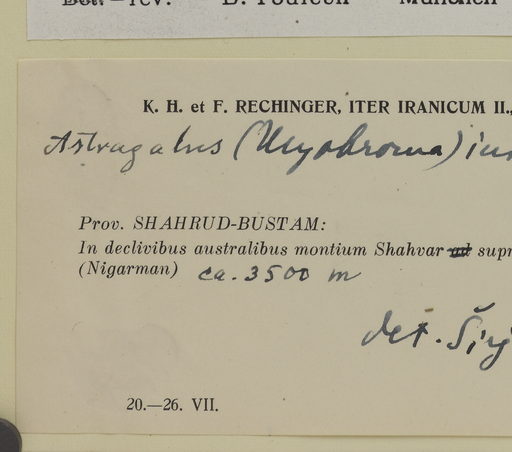 rev. D. Podlech München
K. H. et F. RECHINGER, ITER IRANICUM II.,
Astragalus (Myobroma)
Prov. SHAHRUD-BUSTAM:
In declivibus australibus montium Shahvar ad supr
(Nigarman) ca. 3500 m
det. Širj
20.—26. VII.